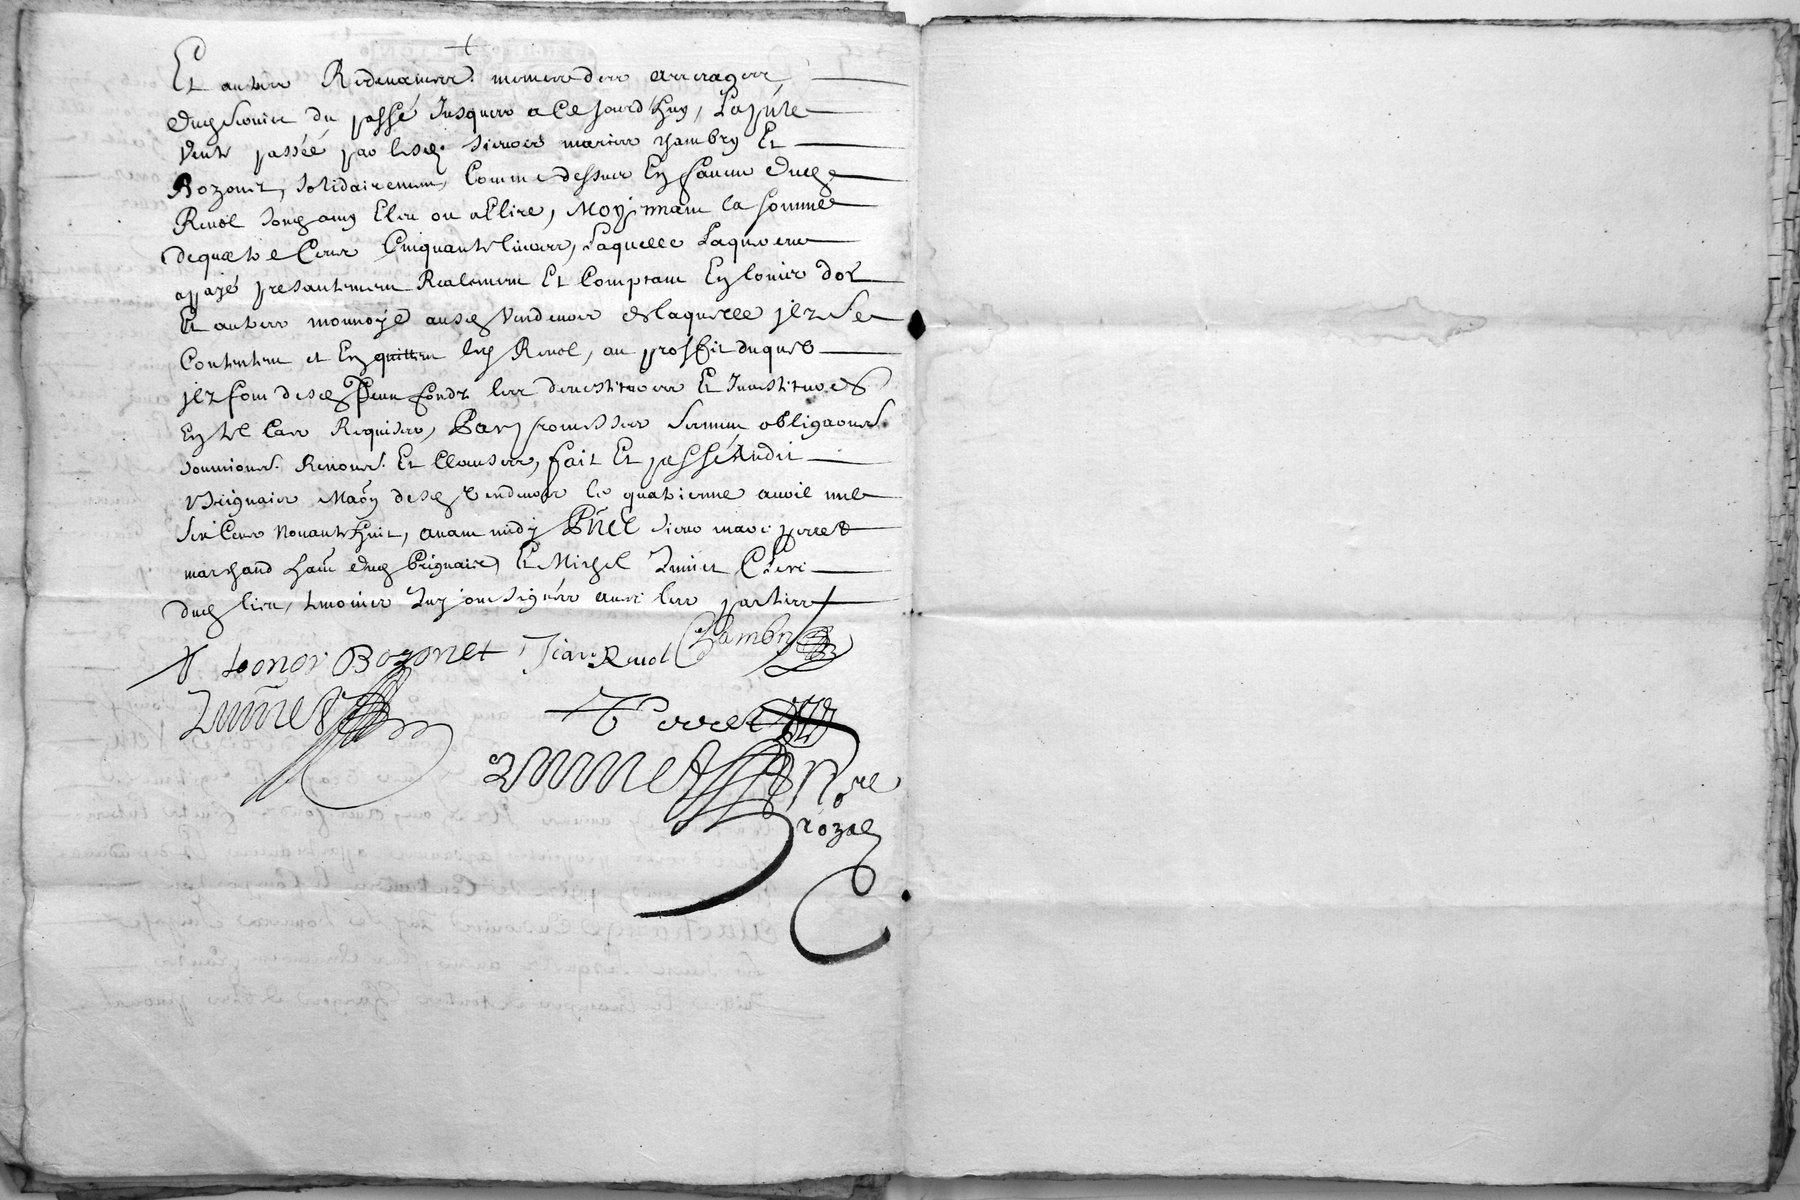 Et autres Redevances mesmes des arrerages
dud servier du passé Jusques a Ce Jourd'huy, La pñte
Vente passée par lesd. sieurs mariez Chambry Et
Bozonet, solidairement Comme dessus En faveur dud
Revol son amy Eleu ou a Elire, Moyennant la somme
de quatre Cens Cinquante livres, Laquelle Laquereur
a payé presantement Realement Et Comptant En louis d'or
Et autres monnoye ausd Vendeurs de laquelle ilz Se
Contentent et En quittent led Revol, au proffit duquel
ilz font desd fondz les devestitures Et Investitures
En tel Cas Requises, Par promesses serment obligaons
soumions Renons Et Clauses, fait Et passé Audit
Maon desd Vendeurs le quatrieme avril mil
Six Cens Nonante huit, avant midy Pñt sieur marc perret
marchand hañt dud Et Michel Zmet Clerc
dud lieu, temoins Quy ont signéz avec les parties
Leonor Bozonet Jean Revol Chambry
Perret
Nore
rozal